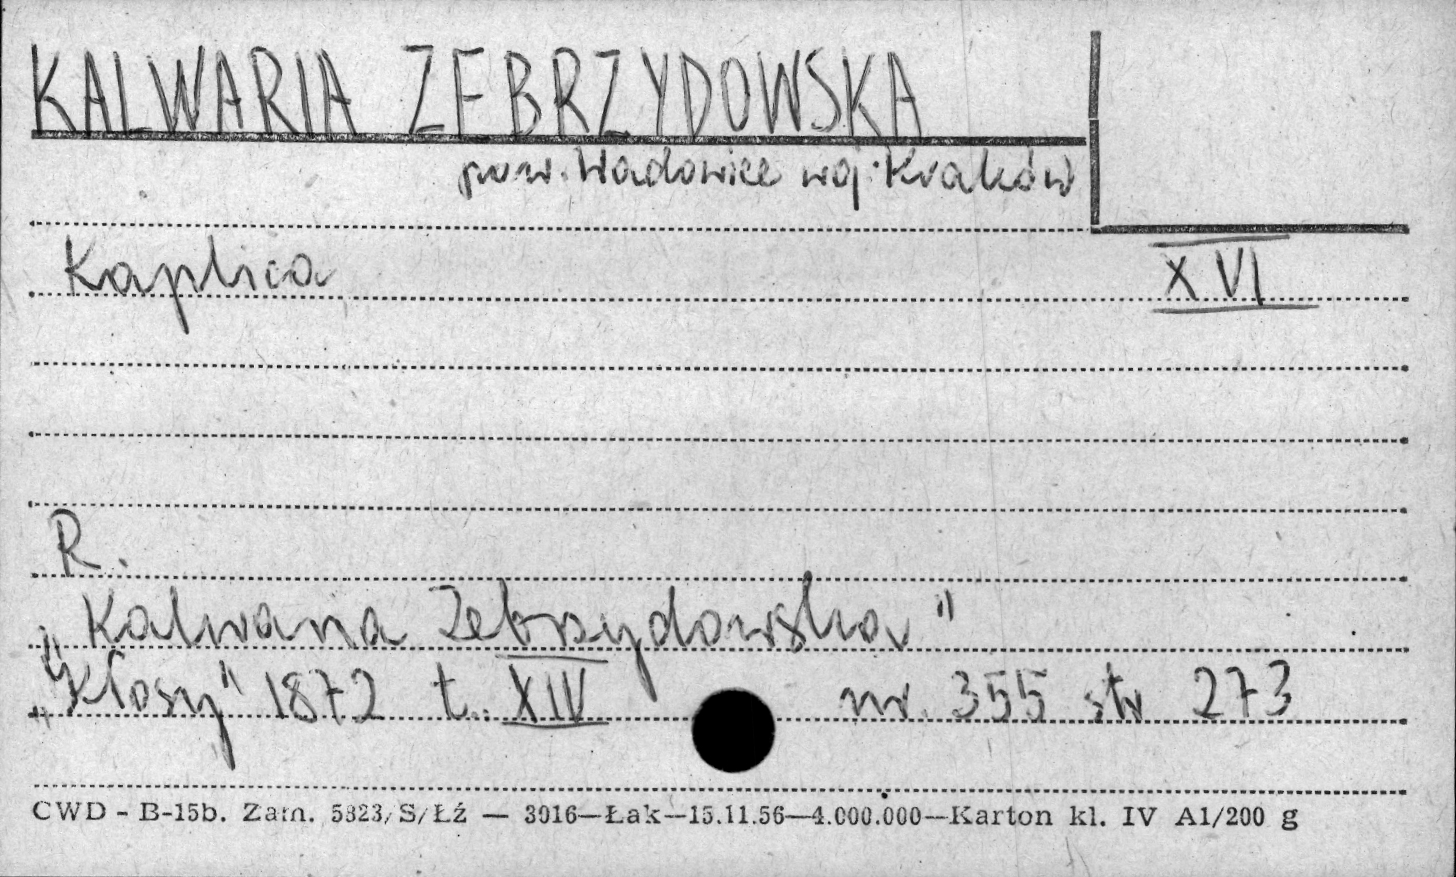 KALWARIA ZEBRZYDOWSKA
pow. Wadowice woj. Kraków
Kaplica XVI
R.
„Kalwaria Zebrzydowska"
„Kłosy" 1872 t. XIV nr. 355 str 273
CWD - B-15b. Zam. 5823/S/Łź — 3916—Łak—15.11.56—4.000.000—Karton kl. IV A1/200 g